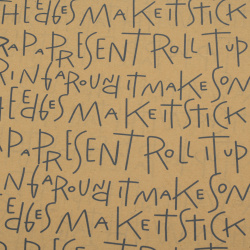 HE EDGES MAKE IT STICK
RAP A PRESENT ROLL IT UP
RING AROUND IT MAKE SOM
HE EDGES MAKE IT STICK
AP A PRESENT ROLL IT UP
RING AROUND IT MAKE SOM
EDGES MAKE IT STICK